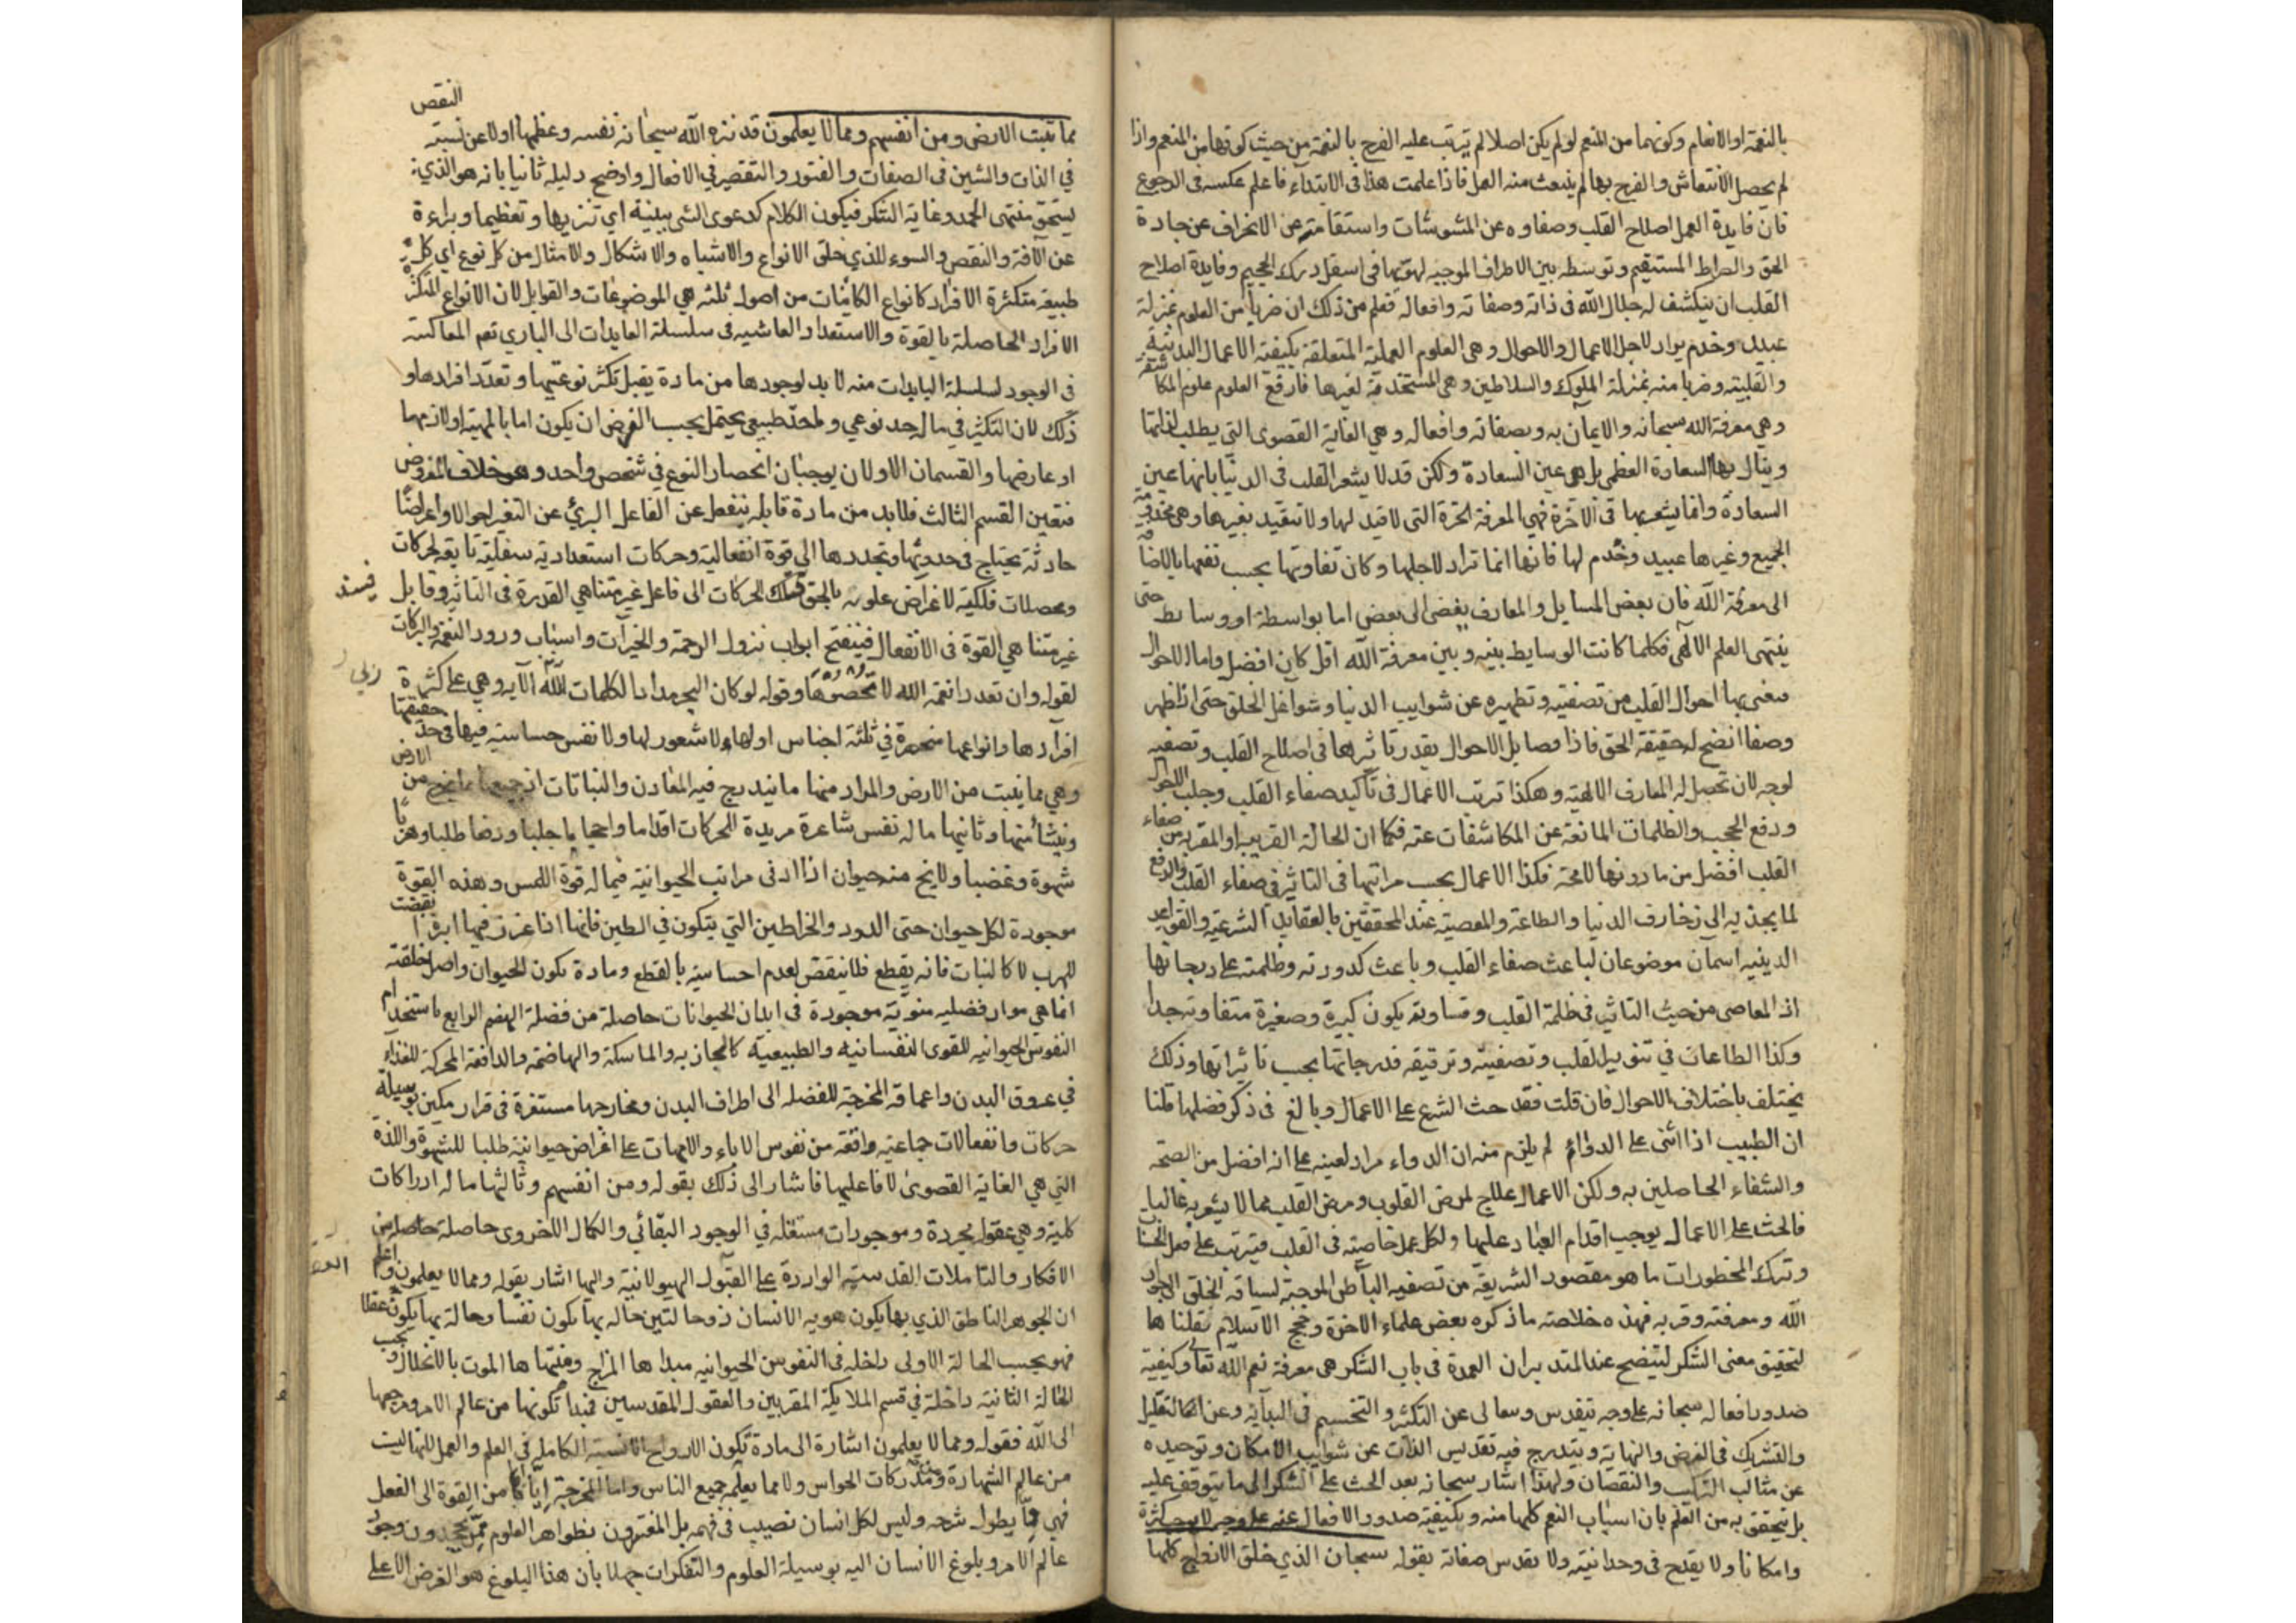 بالنعمة او الانعام وكونهما من المنعم لو لم يكن اصلا لم يترتب عليه الفرح بالنعمة من حيث كونها من المنعم واذا
لم يحصل الانتعاش والفرح بها لم ينبعث منه العمل فاذا علمت هذا فى الابتداء فاعلم عكسه فى الرجوع
فان فايدة العمل اصلاح القلب وصفاوه عن المشوشات واستقامته عن الانحراف عن جادة
الحق والصراط المستقيم وتوسطه بين الاطراف الموجبة لهويها فى اسفل درك الجحيم وفايدة اصلاح
القلب ان ينكشف له جلال الله فى ذاته وصفاته وافعاله فعلم من ذلك ان ضربا من العلوم بمنزلة
عبيد وخدم يراد لاجل الاعمال والاحوال وهى العلوم العملية المتعلقة بكيفية الاعمال البدنية
والقلبية وضربا منه بمنزلة الملوك والسلاطين وهى المستخدمة لغيرها فارفع العلوم علوم المكاشفة
وهى معرفة الله سبحانه والايمان به وبصفاته وافعاله وهى الغاية القصوى التى يطلب لذاتها
وينال بها السعادة العظمى بل هى عين السعادة ولكن قد لا يشعر القلب فى الدنيا بانها عين
السعادة وانما يشعر بها فى الآخرة فهى المعرفة الحرة التى لا قيد لها ولا تتقيد بغيرها وهى مخدومة
الجميع وغيرها عبيد وخدم لها فانها انما تراد لاجلها وكان تفاوتها بحسب نفعها بالاضافة
الى معرفة الله فان بعض المسايل والمعارف يفضى الى بعض اما بواسطة او وسايط حتى
ينتهى العلم الالهى فكلما كانت الوسايط بينه وبين معرفة الله اقل كان افضل واما الاحوال
فنعنى بها احوال القلب من تصفيته وتطهيره عن شوايب الدنيا وشواغل الخلق حتى اذا ظهر
وصفا اتضح له حقيقة الحق فاذا فضايل الاحوال بقدر تاثيرها فى اصلاح القلب وتصفيه
لوجه لان تحصل له المعارف الالهية وهكذا ترتب الاعمال فى تأكيد صفاء القلب وجلب الاحوال
ودفع الحجب والظلمات المانعة عن المكاشفات عنه فكما ان الحالة القريبة او المقربة من صفاء
القلب افضل من ما دونها لا محة فكذا الاعمال بحسب مراتبها فى التاثير فى صفاء القلب والدفع
لما يجذبه الى زخارف الدنيا والطاعة والمعصية عند المحققين بالعقايد الشرعية والقواعد
الدينية اسمان موضوعان لباعث صفاء القلب وباعث كدورته وظلمته على درجاتها
اذ المعاصى من حيث التاثير فى ظلمة القلب وقساوته يكون كبيرة وصغيرة متفاوته جدا
وكذا الطاعات فى تنوير القلب وتصفيته وترقيقه فدرجاتها بحسب تاثيراتها وذلك
يختلف باختلاف الاحوال فان قلت فقد حث الشرع على الاعمال وبالغ فى ذكر فضلها قلنا
ان الطبيب اذا اثنى على الدواء لم يلزم منه ان الدواء مراد لعينه على انه افضل من الصحة
والشفاء الحاصلين به ولكن الاعمال علاج لمرض القلوب ومرض القلب مما لا يشعر به غالبا
فالحث على الاعمال يوجب اقدام العباد عليها ولكل عمل خاصية فى القلب فيترتب على فعل الحسنات
وترك المحظورات ما هو مقصود الشريعة من تصفيه الباطن الموجبة لسياقه الخلق الى جوار
الله ومعرفته وقربه فهذه خلاصة ما ذكره بعض علماء الاخرة وحجج الاسلام نقلناها
لتحقيق معنى الشكر ليتضح عند المتدبر ان العمدة فى باب الشكر هى معرفة نعم الله تعالى وكيفية
صدور افعاله سبحانه على وجه يتقدس وتعالى عن التكثر والتجسم فى البداية وعن
والتشريك فى الغرض والنهاية ويندرج فيه تقديس الذات عن شوايب الامكان وتوحيده
عن مثالب التركيب والنقصان ولهذا اشار سبحانه بعد الحث على الشكر الى ما يتوقف عليه
بل يتحقق به من العلم بان اسباب النعم كلها منه وبكيفية صدور الافعال عنه على وجه لا يوجب كثرة
وامكانا ولا يقدح فى وحدانيته ولا تقدس صفاته بقوله سبحان الذي خلق الازواج كلها
مما تنبت الارض ومن انفسهم ومما لا يعلمون قد نزه الله سبحانه نفسه وعظمها اولا عن نسبة النقص
في الذات والشين فى الصفات والفتور والتقصير في الافعال واوضح دليله ثانيا بانه هو الذي
يستحق منتهى الحمد وغاية الشكر فيكون الكلام كدعوى الشئ ببينة اي تنزيها وتعظيما وبراءة
عن الآفة والنقص والسوء للذي خلق الانواع والاشباه والاشكال والامثال من كل نوع اي كل
طبيعة متكثرة الافراد كانواع الكائنات من اصول ثلثه هي الموضوعات والقوابل لان الانواع المتكثرة
الافراد الحاصلة بالقوة والاستعداد العاشية فى سلسلة العايدات الى الباري نعم المعاكسة
فى الوجود لسلسلة الباديات منه لا بد لوجودها من مادة يقبل تكثر نوعيتها وتعدد افرادها و
ذلك لان التكثر في ما له حد نوعي واحد طبيعى يحتمل بحسب الفرض ان يكون اما بالمهية او لازمها
او عارضها والقسمان الاولان يوجبان انحصار النوع في شخص واحد وهو خلاف المفروض
فتعين القسم الثالث فلابد من مادة قابلة ينفعل عن الفاعل البرئ عن التغير احوالا واعراضا
حادثة يحتاج فى حدوثها وتجددها الى قوة انفعالية وحركات استعدادية سفلية تابعة لحركات
ومحصلات فلكية لاغراض علوية بالحق فتلك الحركات الى فاعل غير متناهي القدرة فى التاثير وقابل
فيستند
غير متناهي القوة فى الانفعال فينفتح ابواب نزول الرحمة والخيرات واسباب ورود النعمة والبركات
لقوله وان تعدوا نعمة الله لا تحصوها وقوله لو كان البحر مدادا لكلمات الله الآية وهي على كثرة
افرادها وانواعها منحصرة في ثلثة اجناس اولها ما لا شعور لها ولا نفس حساسية فيها فى حد حقيقتها
وهي مما ينبت من الارض والمراد منها ما يندرج فيه المعادن والنباتات اذ جميعها ما يخرج من الارض
وينشأ منها وثانيها ما له نفس شاعرة مريدة للحركات اقداما واحجاما جلبا ودفعا طلبا وهربا
شهوة وغضبا ولا يخ منه حيوان اذ ادنى مراتب الحيوانية فيما له قوة اللمس وهذه القوة
موجودة لكل حيوان حتى الدود والخراطين التي يتكون في الطين فانها اذا غرزت فيها ابرة انقبضت
للهرب لا كالنبات فانه يقطع فلا ينقبض لعدم احساسيته بالقطع ومادة تكون الحيوان واصل خلقته
انما هى مواد فضلية منوية موجودة فى ابدان الحيوانات حاصلة من فضلة الهضم الرابع باستخدام
النفوس الحيوانية للقوى النفسانية والطبيعية كالجاذبه والماسكة والهاضمة والدافعة المحركة للغذاء
في عروق البدن واعماقه المخرجة للفضلة الى اطراف البدن ومخارجها مستقرة فى قرار مكين بوسيلة
حركات وانفعالات جماعية واقعة من نفوس الاباء والامهات على اغراض حيوانية طلبا للشهوة واللذة
التي هي الغاية القصوى لافاعليها فاشار الى ذلك بقوله ومن انفسهم وثالثها ما له ادراكات
كلية وهي عقول مجردة وموجودات مستقلة في الوجود البقائي والكمال الاخروى حاصلة من
الافكار والتاملات القدسية الواردة على العقول الهيولانية واليها اشار بقوله ومما لا يعلمون واعلم
ان الجوهر الناطق الذي بها يكون هويه الانسان ذو حالتين حاله بها يكون نفسا وحالة بها يكون عقلا
فهو بحسب الحالة الاولى داخله فى النفوس الحيوانيه مبداها المزاج ومنتهاها الموت بالانحلال وبحسب
الحالة الثانية داخلة في قسم الملايكة المقربين والعقول المقدسين فمبدأ تكونها من عالم الامر ومرجعها
الى الله فقوله ومما لا يعلمون اشارة الى مادة تكون الارواح الانسية الكاملة في العلم والعمل لانها ليست
من عالم الشهادة ومدركات الحواس ولا مما يعلمه جميع الناس واما المخرجة اياها من القوة الى الفعل
فهي مما يطول شرحه وليس لكل انسان نصيب فى فهمه بل المغترون بظواهر العلوم ممن يجحدون وجود
عالم الامر وبلوغ الانسان اليه بوسيلة العلوم والتفكرات جهلا بان هذا البلوغ هو الغرض الاعلى